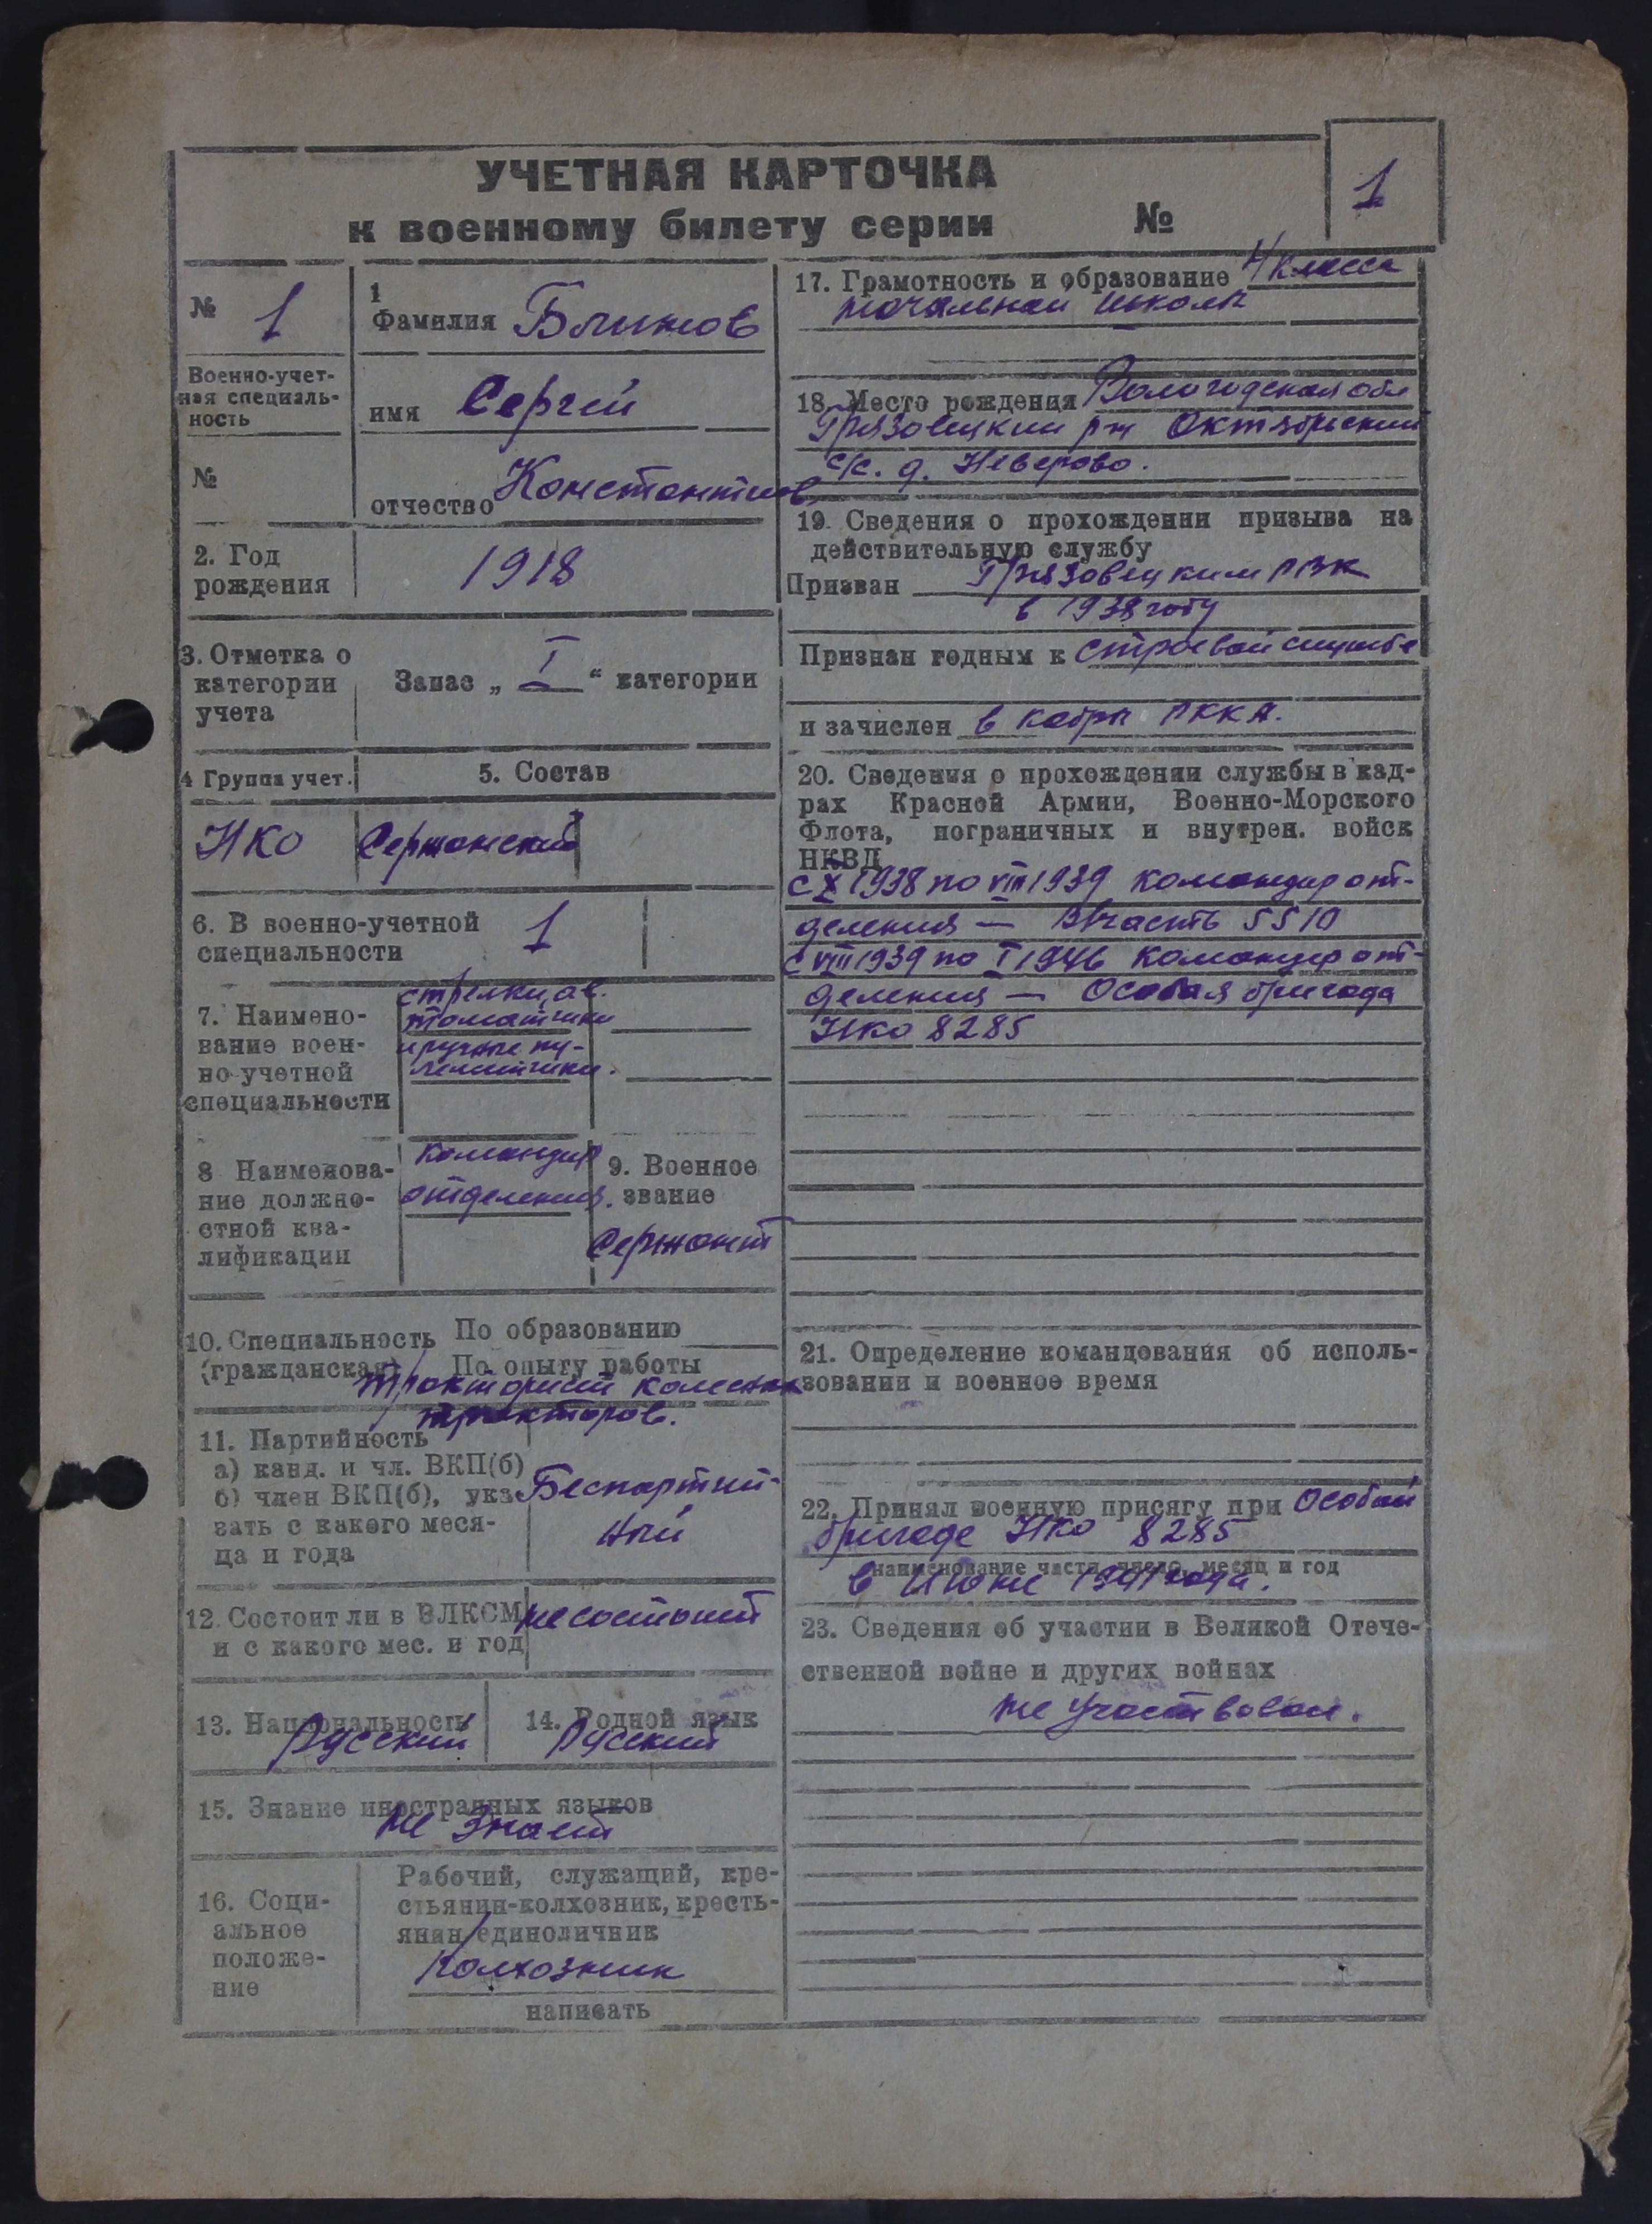 УЧЕТНАЯ КАРТОЧКА
к военному билету серии №
1
№ 1
Военно-учет-
ная специаль-
ность
№
1
Фамилия Блинов
имя Сергей
отчество Константинов.
2. Год
рождения
1918
3. Отметка о
категории
учета
Запас „ I “ категории
4 Группа учет.
5. Состав
НКО
Сержанский
6. В военно-учетной
специальности
1
7. Наимено-
вание воен-
но-учетной
специальности
стрелки, ав-
томатчики
и ручные пу-
леметчики.
8 Наименова-
ние должно-
стной ква-
лификации
командир
отделения.
9. Военное
звание
Сержант
10. Специальность
(гражданская)
По образованию
По опыту работы
тракторист колесных
тракторов.
11. Партийность
а) канд. и чл. ВКП(б)
б) член ВКП(б), ука-
зать с какого меся-
ца и года
Беспартий-
ный
12. Состоит ли в ВЛКСМ
и с какого мес. и год
не состоит
13. Национальность
Русский
14. Родной язык
Русский
15. Знание иностранных языков
не знает
16. Соци-
альное
положе-
ние
Рабочий, служащий, кре-
стьянин-колхозник, кресть-
янин единоличник
Колхозник
написать
17. Грамотность и образование 4 класса
начальной школы
18. Место рождения Вологодская обл
Грязовецкий рн Октябрьский
с/с. д. Неверово.
19. Сведения о прохождении призыва на
действительную службу
Призван Грязовецким РВК
в 1938 году
Признан годным к строевой службе
и зачислен в кадры РККА.
20. Сведения о прохождении службы в кад-
рах Красной Армии, Военно-Морского
Флота, пограничных и внутрен. войск
НКВД
с X 1938 по VIII 1939 командир от-
деления — В/часть 5510
с VIII 1939 по I 1946 командир от-
деления — Особая бригада
НКО 8285
21. Определение командования об исполь-
зовании и военное время
22. Принял военную присягу при Особой
бригаде НКО 8285
наименование части, число, месяц и год
в Июне 1941 года.
23. Сведения об участии в Великой Отече-
ственной войне и других войнах
не участвовал.